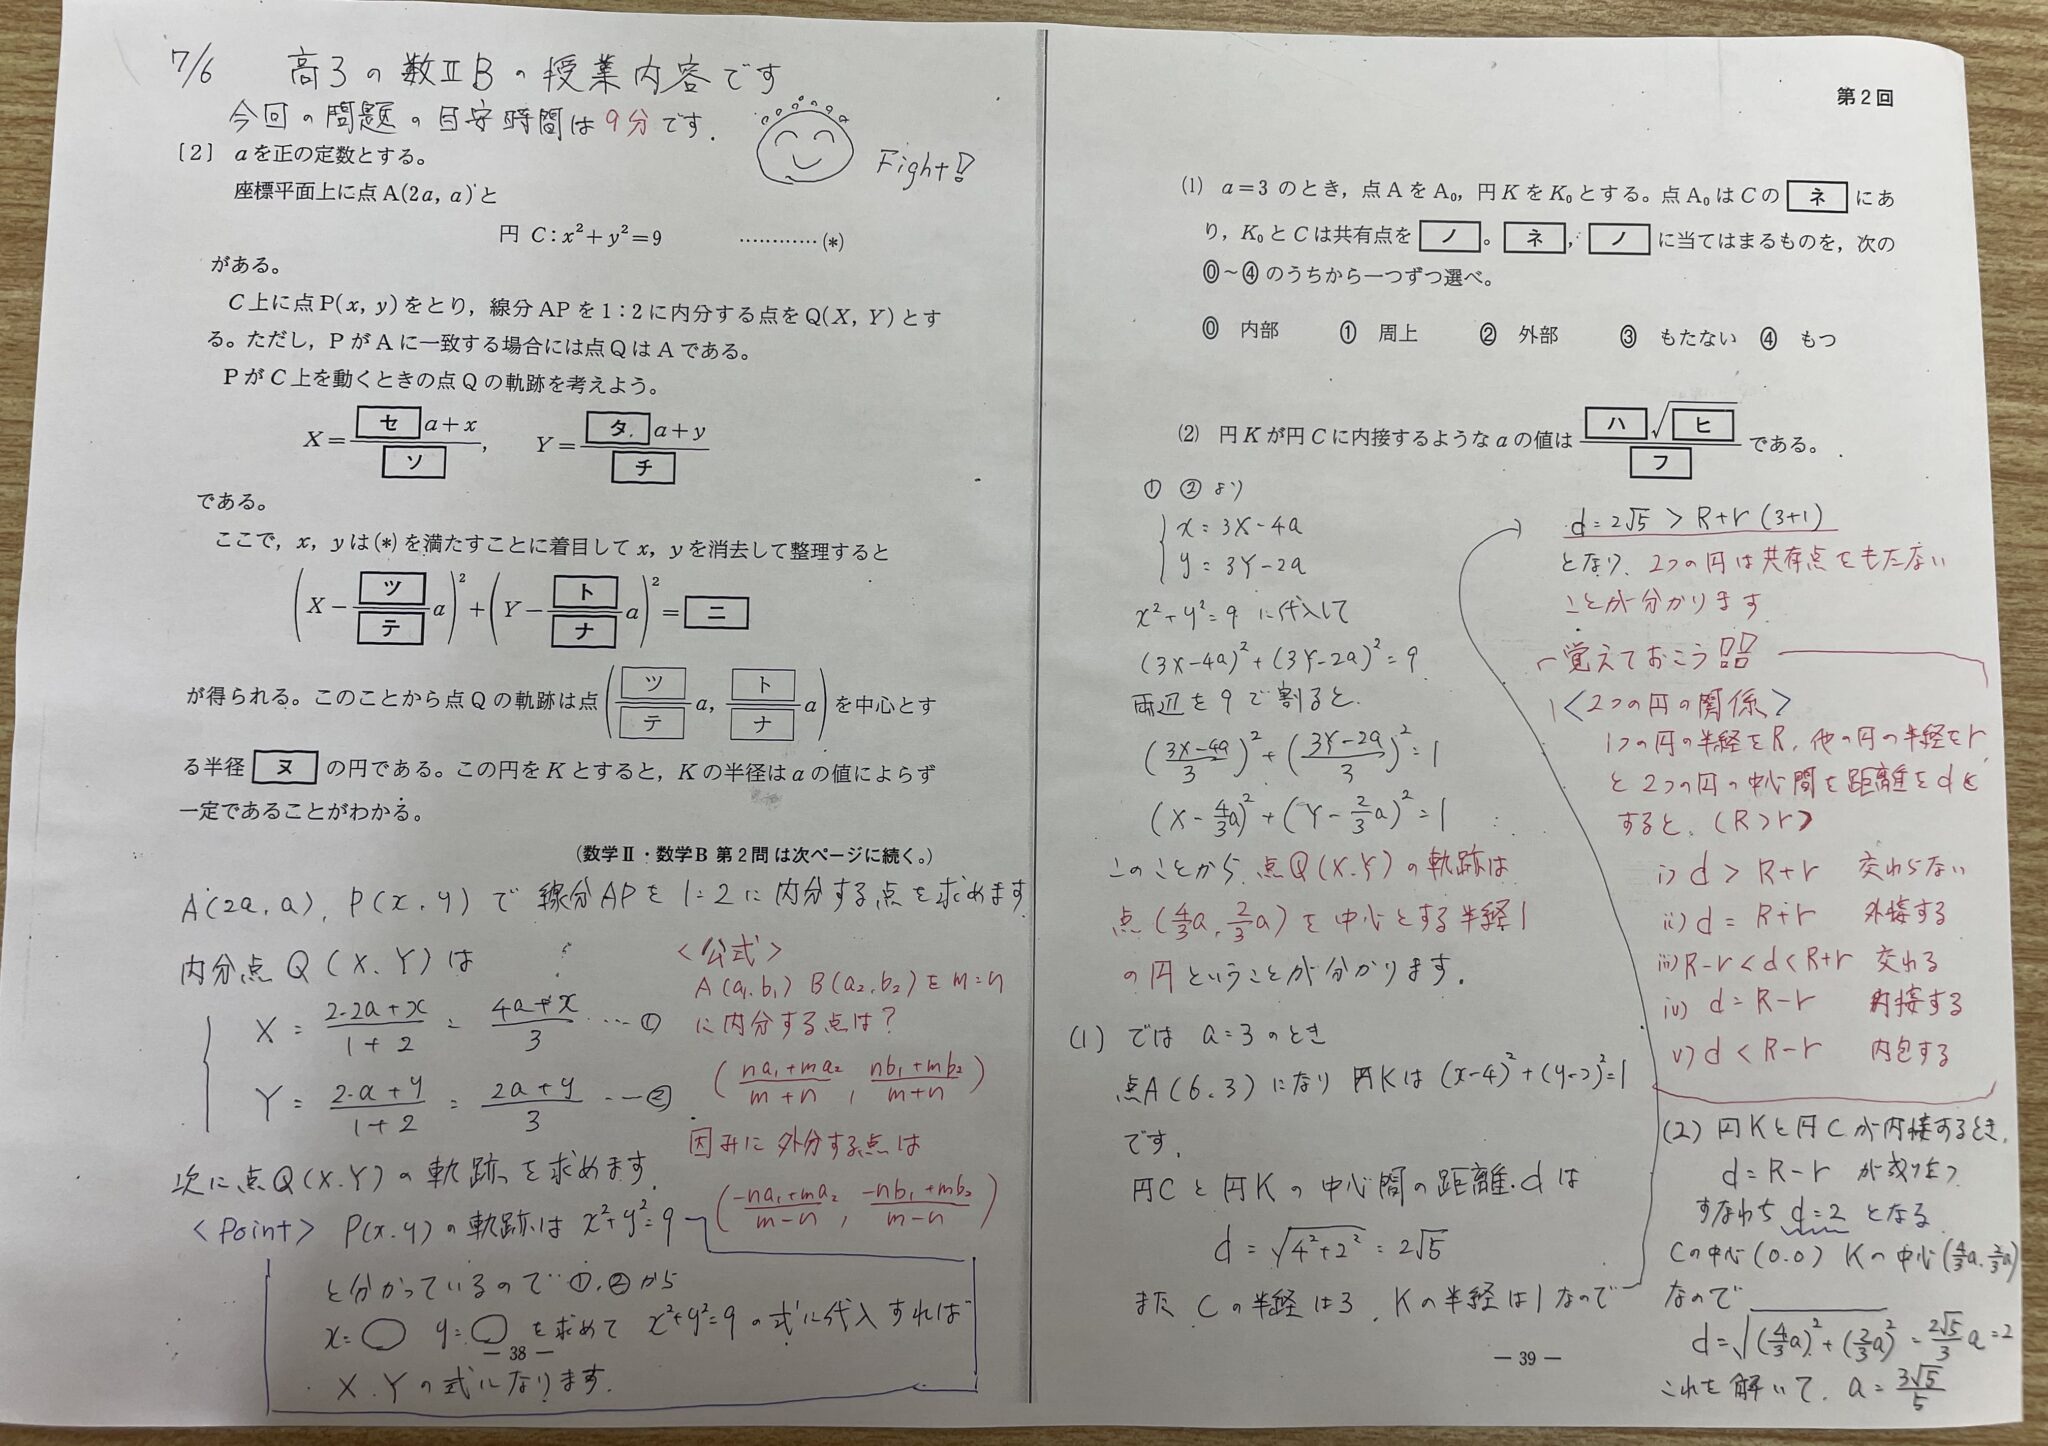 7/6 高3の数ⅡBの授業内容です
今回の問題の目安時間は9分です.
Fight!
〔2〕 aを正の定数とする。
座標平面上に点A(2a, a)と
円 C : x²+y²=9 …………(*)
がある。
C上に点P(x, y)をとり，線分APを1：2に内分する点をQ(X, Y)とす
る。ただし，PがAに一致する場合には点QはAである。
PがC上を動くときの点Qの軌跡を考えよう。
X = (セ a+x)/ソ , Y = (タ a+y)/チ
である。
ここで，x，yは(*)を満たすことに着目してx，yを消去して整理すると
(X − ツ/テ a)² + (Y − ト/ナ a)² = ニ
が得られる。このことから点Qの軌跡は点(ツ/テ a, ト/ナ a)を中心とす
る半径 ヌ の円である。この円をKとすると，Kの半径はaの値によらず
一定であることがわかる。
(数学Ⅱ・数学B 第2問 は次ページに続く。)
A(2a, a), P(x, y)で線分APを1:2に内分する点を求めます
内分点Q(X, Y)は
X = (2·2a+x)/(1+2) = (4a+x)/3 …①
Y = (2·a+y)/(1+2) = (2a+y)/3 …②
<公式>
A(a₁,b₁) B(a₂,b₂)をm=n
に内分する点は?
((na₁+ma₂)/(m+n), (nb₁+mb₂)/(m+n))
因みに外分する点は
((-na₁+ma₂)/(m-n), (-nb₁+mb₂)/(m-n))
次に点Q(X,Y)の軌跡を求めます.
<Point> P(x,y)の軌跡は x²+y²=9
と分かっているので ①,②から
x=◯ y=◯ を求めて x²+y²=9 の式に代入すれば
X,Yの式になります.
— 38 —
第2回
(1) a=3のとき，点AをA₀，円KをK₀とする。点A₀はCの ネ にあ
り，K₀とCは共有点を ノ 。 ネ ， ノ に当てはまるものを，次の
⓪～④のうちから一つずつ選べ。
⓪ 内部 ① 周上 ② 外部 ③ もたない ④ もつ
(2) 円Kが円Cに内接するようなaの値は ハ√ヒ/フ である。
① ② より
x = 3X-4a
y = 3Y-2a
x²+y²=9 に代入して
(3X-4a)²+(3Y-2a)²=9
両辺を9で割ると.
((3X-4a)/3)²+((3Y-2a)/3)²=1
(X-4/3a)²+(Y-2/3a)²=1
このことから 点Q(X,Y)の軌跡は
点(4/3a, 2/3a)を中心とする半経1
の円ということが分かります.
(1) では a=3のとき
点A(6,3)になり 円Kは (x-4)²+(y-2)²=1
です.
円Cと円Kの中心間の距離dは
d = √(4²+2²) = 2√5
また Cの半経は3, Kの半経は1なので
d=2√5 > R+r (3+1)
となり, 2つの円は共有点をもたない
ことが分かります
覚えておこう!!
<2つの円の関係>
1つの円の半経をR, 他の円の半経をr
と2つの円の中心間を距離をdと
すると, (R>r>
i) d > R+r 交わらない
ii) d = R+r 外接する
iii) R-r<d<R+r 交わる
iv) d=R-r 内接する
v) d < R-r 内包する
(2) 円Kと円Cが内接するとき,
d=R-r が成り立つ
すなわち d=2 となる
Cの中心(0,0) Kの中心(4/3a, 2/3a)
なので
d=√((4/3a)²+(2/3a)²) = 2√5/3 a =2
これを解いて, a = 3√5/5
— 39 —